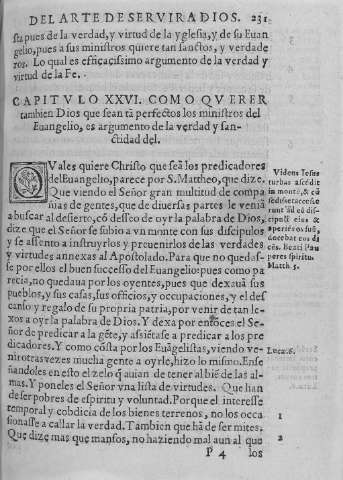 DEL ARTE DE SERVIR A DIOS. 231
sta pues de la verdad, y virtud de la yglesia, y de su Euan
gelio, pues a sus ministros quiere tan sanctos, y verdade
ros. Lo qual es efficacissimo argumento de la verdad y
virtud de la Fe.
CAPITVLO XXVI. COMO QVERER
tambien Dios que sean tã perfectos los ministros del
Euangelio, es argumento de la verdad y san-
ctidad del.
QVales quiere Christo que seã los predicadores
del Euangelio, parece por S. Mattheo, que dize.
Que viendo el Señor gran multitud de compa
ñias de gentes, que de diuersas partes le veniã
a buscar al desierto, cõ desseo de oyr la palabra de Dios,
dize que el Señor se subio a vn monte con sus discipulos
y se assento a instruyrlos y preuenirlos de las verdades
y virtudes annexas al Apostolado. Para que no quedas-
se por ellos el buen successo del Euangelio: pues como pa
recia, no quedaua por los oyentes, pues que dexauã sus
pueblos, y sus casas, sus officios, y occupaciones, y el des
canso y regalo de su propria patria, por venir de tan le-
xos a oyr la palabra de Dios. Y dexa por entõces el Se-
ñor de predicar a la gẽte, y assiẽtase a predicar a los pre
dicadores. Y como cõsta por los Euãgelistas, viendo ve-
nir otras vezes mucha gente a oyrle, hizo lo mismo. Ense
ñandoles en esto el zelo q̃ auian de tener al biẽ de las al-
mas. Y poneles el Señor vna lista de virtudes. Que han
de ser pobres de espiritu y voluntad. Porque el interesse
temporal y cobdicia de los bienes terrenos, no los occa
sionasse a callar la verdad. Tambien que hã de ser mites.
Que dize mas que mansos, no haziendo mal aun al que
P 4 los
Videns Iesus
turbas ascẽdit
in montẽ, & cũ
sedisset accesse
Matth. 5.
Luc. 6.
1
2